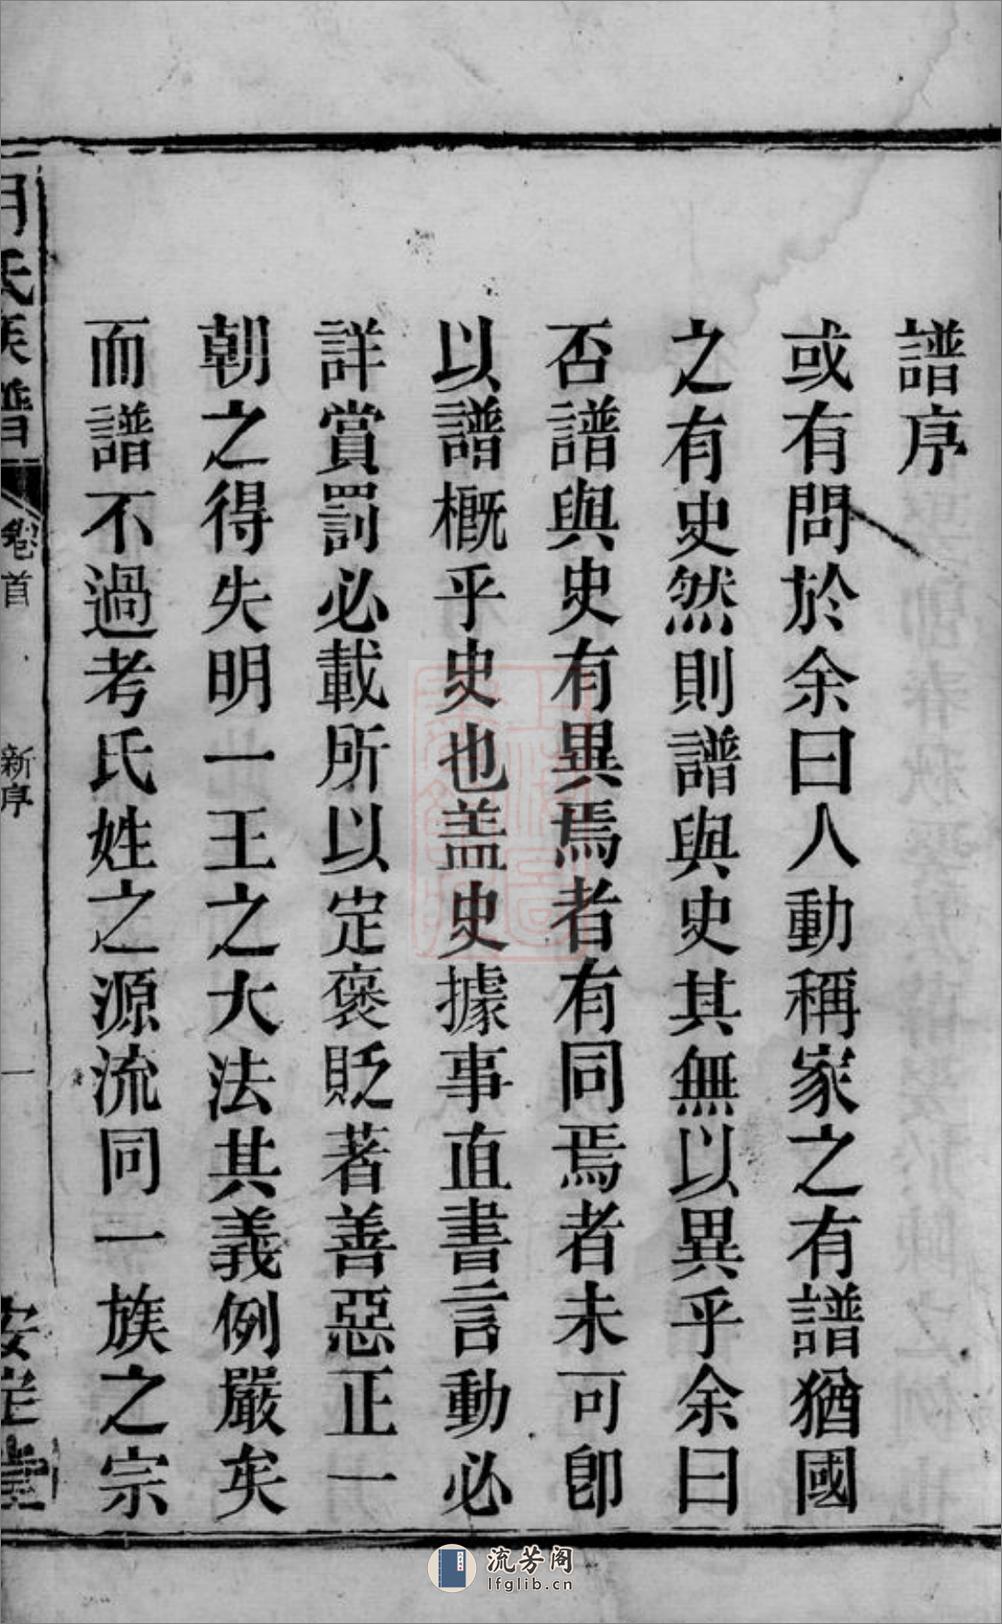 譜序
或有問於余曰人動稱家之有譜猶國
之有史然則譜與史其無以異乎余曰
否譜與史有異焉者有同焉者未可卽
以譜概乎史也盖史據事直書言動必
詳賞罰必載所以定褒貶著善惡正一
朝之得失明一王之大法其義例嚴矣
而譜不過考氏姓之源流同一族之宗
氏族譜 卷首 新序 一 堂
流芳阁
lfglib.cn